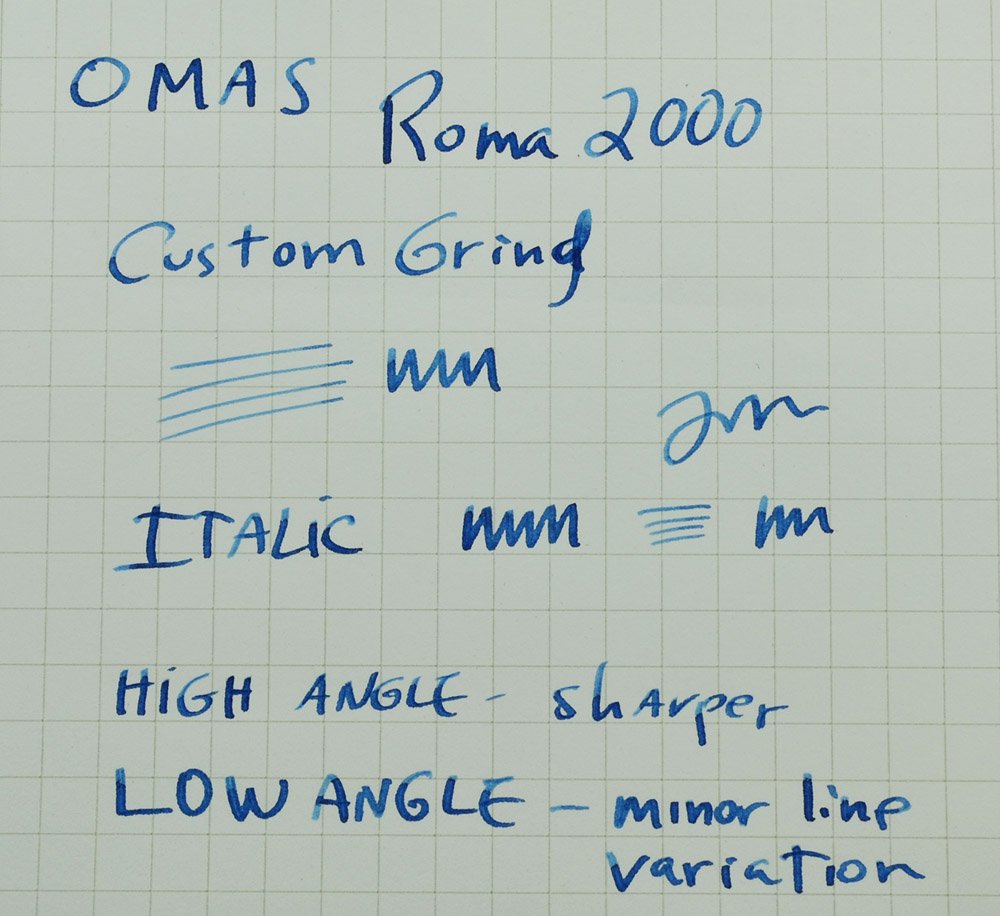 OMAS
Roma 2000
Custom Grind
ITALiC
HiGH ANGLE - sharper
LOW ANGLE - minor line
variation